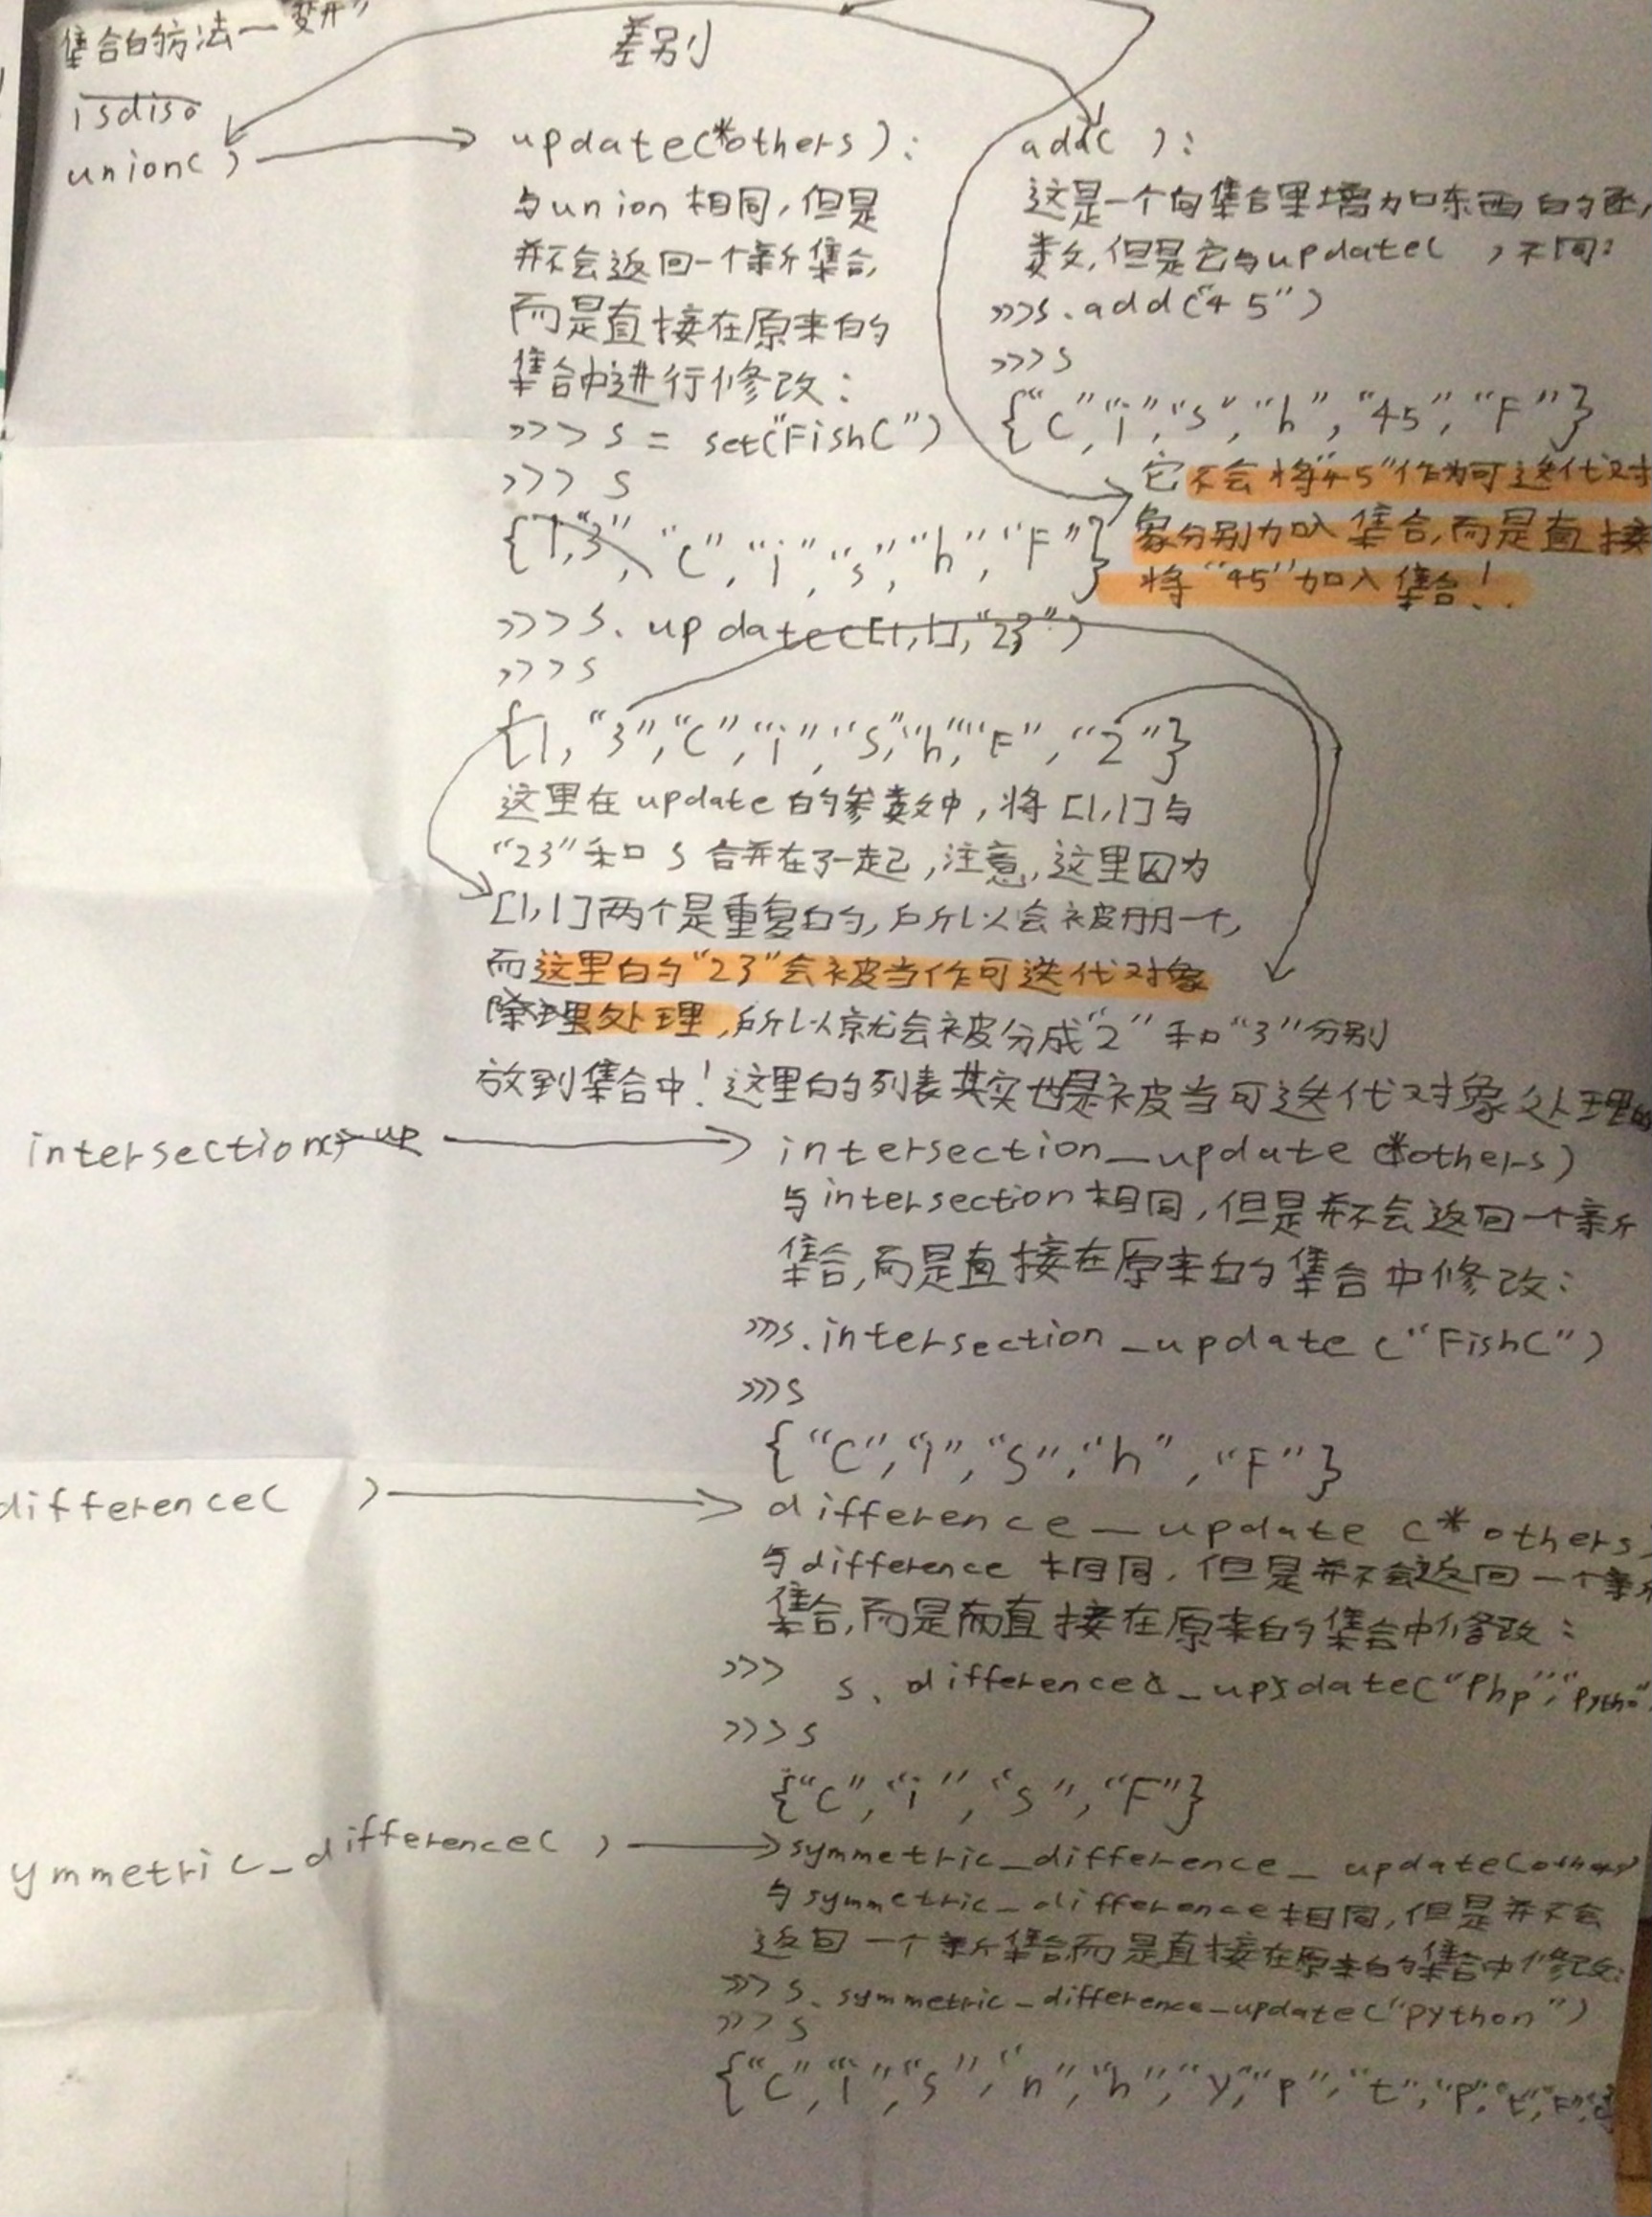 集合的方法一"变形"
差别
isdiso
union( )
update(*others):
与union相同,但是
并不会返回一个新集合,
而是直接在原来的
集合中进行修改:
>>> s = set("FishC")
>>> s
{1,"3", "C", "i", "s", "h", "F"}
>>> s. update([1,1],"23")
>>> s
{1, "3", "C", "i", "S", "h", "F", "2"}
这里在update的参数中,将[1,1]与
"23"和 s 合并在了一起,注意,这里因为
[1,1]两个是重复的,所以会被删一个,
而这里的"23"会被当作可迭代对象
处理,所以就会被分成"2"和"3"分别
放到集合中!这里的列表其实也是被当可迭代对象处理的
add( ):
这是一个向集合里增加东西的函
数,但是它与update( )不同:
>>>s.add("45")
>>>s
{"C","i","s","h","45","F"}
它不会将"45"作为可迭代对
象分别加入集合,而是直接
将"45"加入集合!
intersection( ) up
intersection_update (*others)
与intersection相同,但是并不会返回一个新
集合,而是直接在原来的集合中修改:
>>>s.intersection_update ("FishC")
>>>s
{"C","i","S","h","F"}
difference( )
difference_update (*others
与difference 相同,但是并不会返回一个新
集合,而是直接在原来的集合中修改:
>>> s. difference_update("Php","Pytho"
>>>s
{"C","i","s","F"}
ymmetric_difference( )
symmetric_difference_update(others)
与symmetric_difference相同,但是并不会
返回一个新集合而是直接在原来的集合中修改:
>>> s.symmetric_difference_update("python")
>>> s
{"C","i","s","n","h","y","p","t","P","t","F",